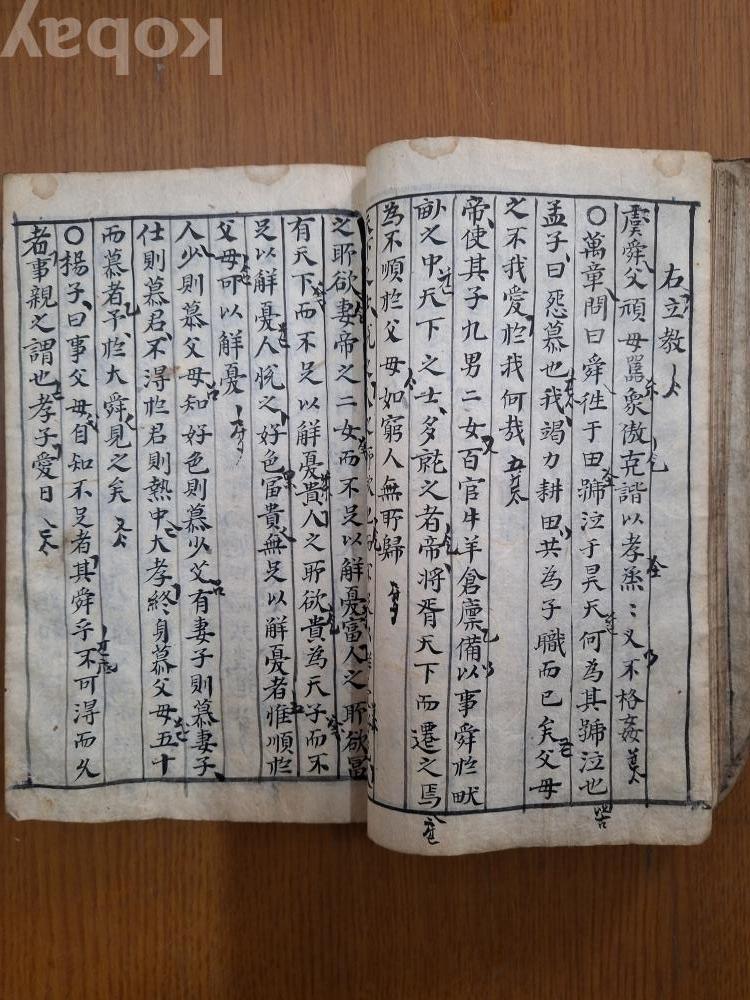 Kobay
右立教
虞舜父頑母嚚象傲克諧以孝烝〻乂不格姦
○萬章問曰舜徃于田號泣于昊天何為其號泣也
孟子曰怨慕也我竭力耕田共為子職而已矣父母
之不我愛於我何哉
帝使其子九男二女百官牛羊倉廩備以事舜於畎
畝之中天下之士多就之者帝將胥天下而遷之焉
為不順於父母如窮人無所歸
之所欲妻帝之二女而不足以解憂富人之所欲富
有天下而不足以解憂貴人之所欲貴為天子而不
足以解憂人悅之好色富貴無足以解憂者惟順於
父母可以解憂
人少則慕父母知好色則慕少艾有妻子則慕妻子
仕則慕君不得於君則熱中大孝終身慕父母五十
而慕者予於大舜見之矣
○揚子曰事父母自知不足者其舜乎不可得而久
者事親之謂也孝子愛日